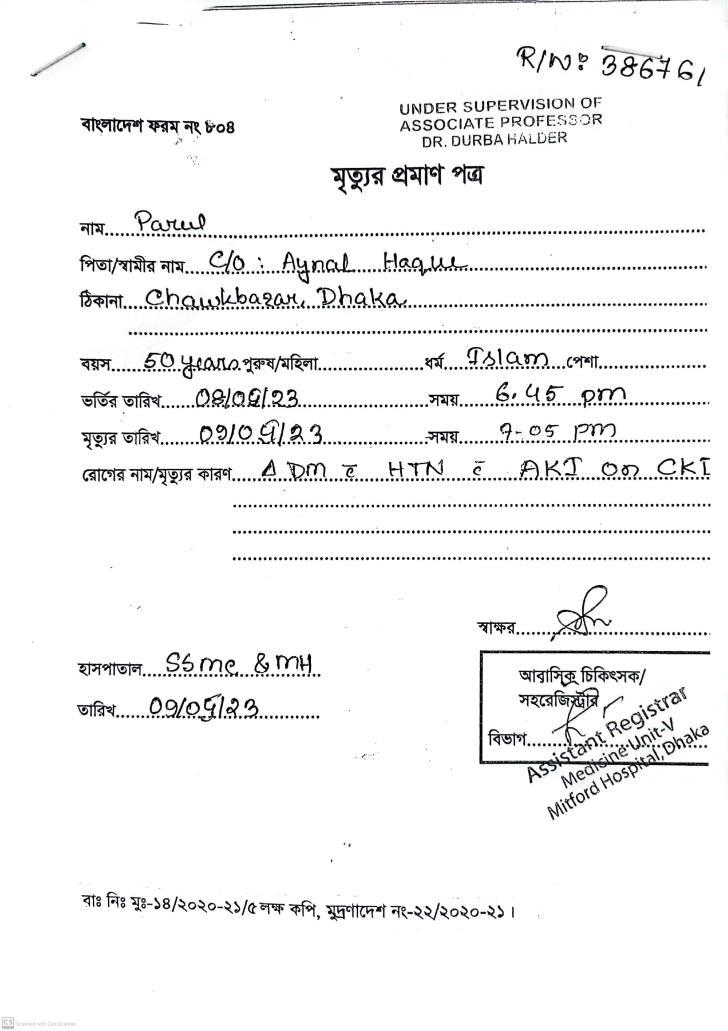 R/N: 386761
বাংলাদেশ ফরম নং ৮০৪
UNDER SUPERVISION OF
ASSOCIATE PROFESSOR
DR. DURBA HALDER
মৃত্যুর প্রমাণ পত্র
নাম Parul
পিতা/স্বামীর নাম C/O : Aynal Haque
ঠিকানা Chawkbazar, Dhaka
বয়স 50 years পুরুষ/মহিলা ধর্ম Islam পেশা
ভর্তির তারিখ সময় 6.45 pm
মৃত্যুর তারিখ সময় 7-05 pm
রোগের নাম/মৃত্যুর কারণ Δ DM c̄ HTN c̄ AKI on CKI
স্বাক্ষর
হাসপাতাল SSMC & MH
তারিখ
আবাসিক চিকিৎসক/
সহরেজিস্ট্রার
বিভাগ
Assistant Registrar
Medicine Unit-V
Mitford Hospital, Dhaka
বাঃ নিঃ মুঃ-১৪/২০২০-২১/৫ লক্ষ কপি, মুদ্রণাদেশ নং-২২/২০২০-২১।
CS Scanned with CamScanner